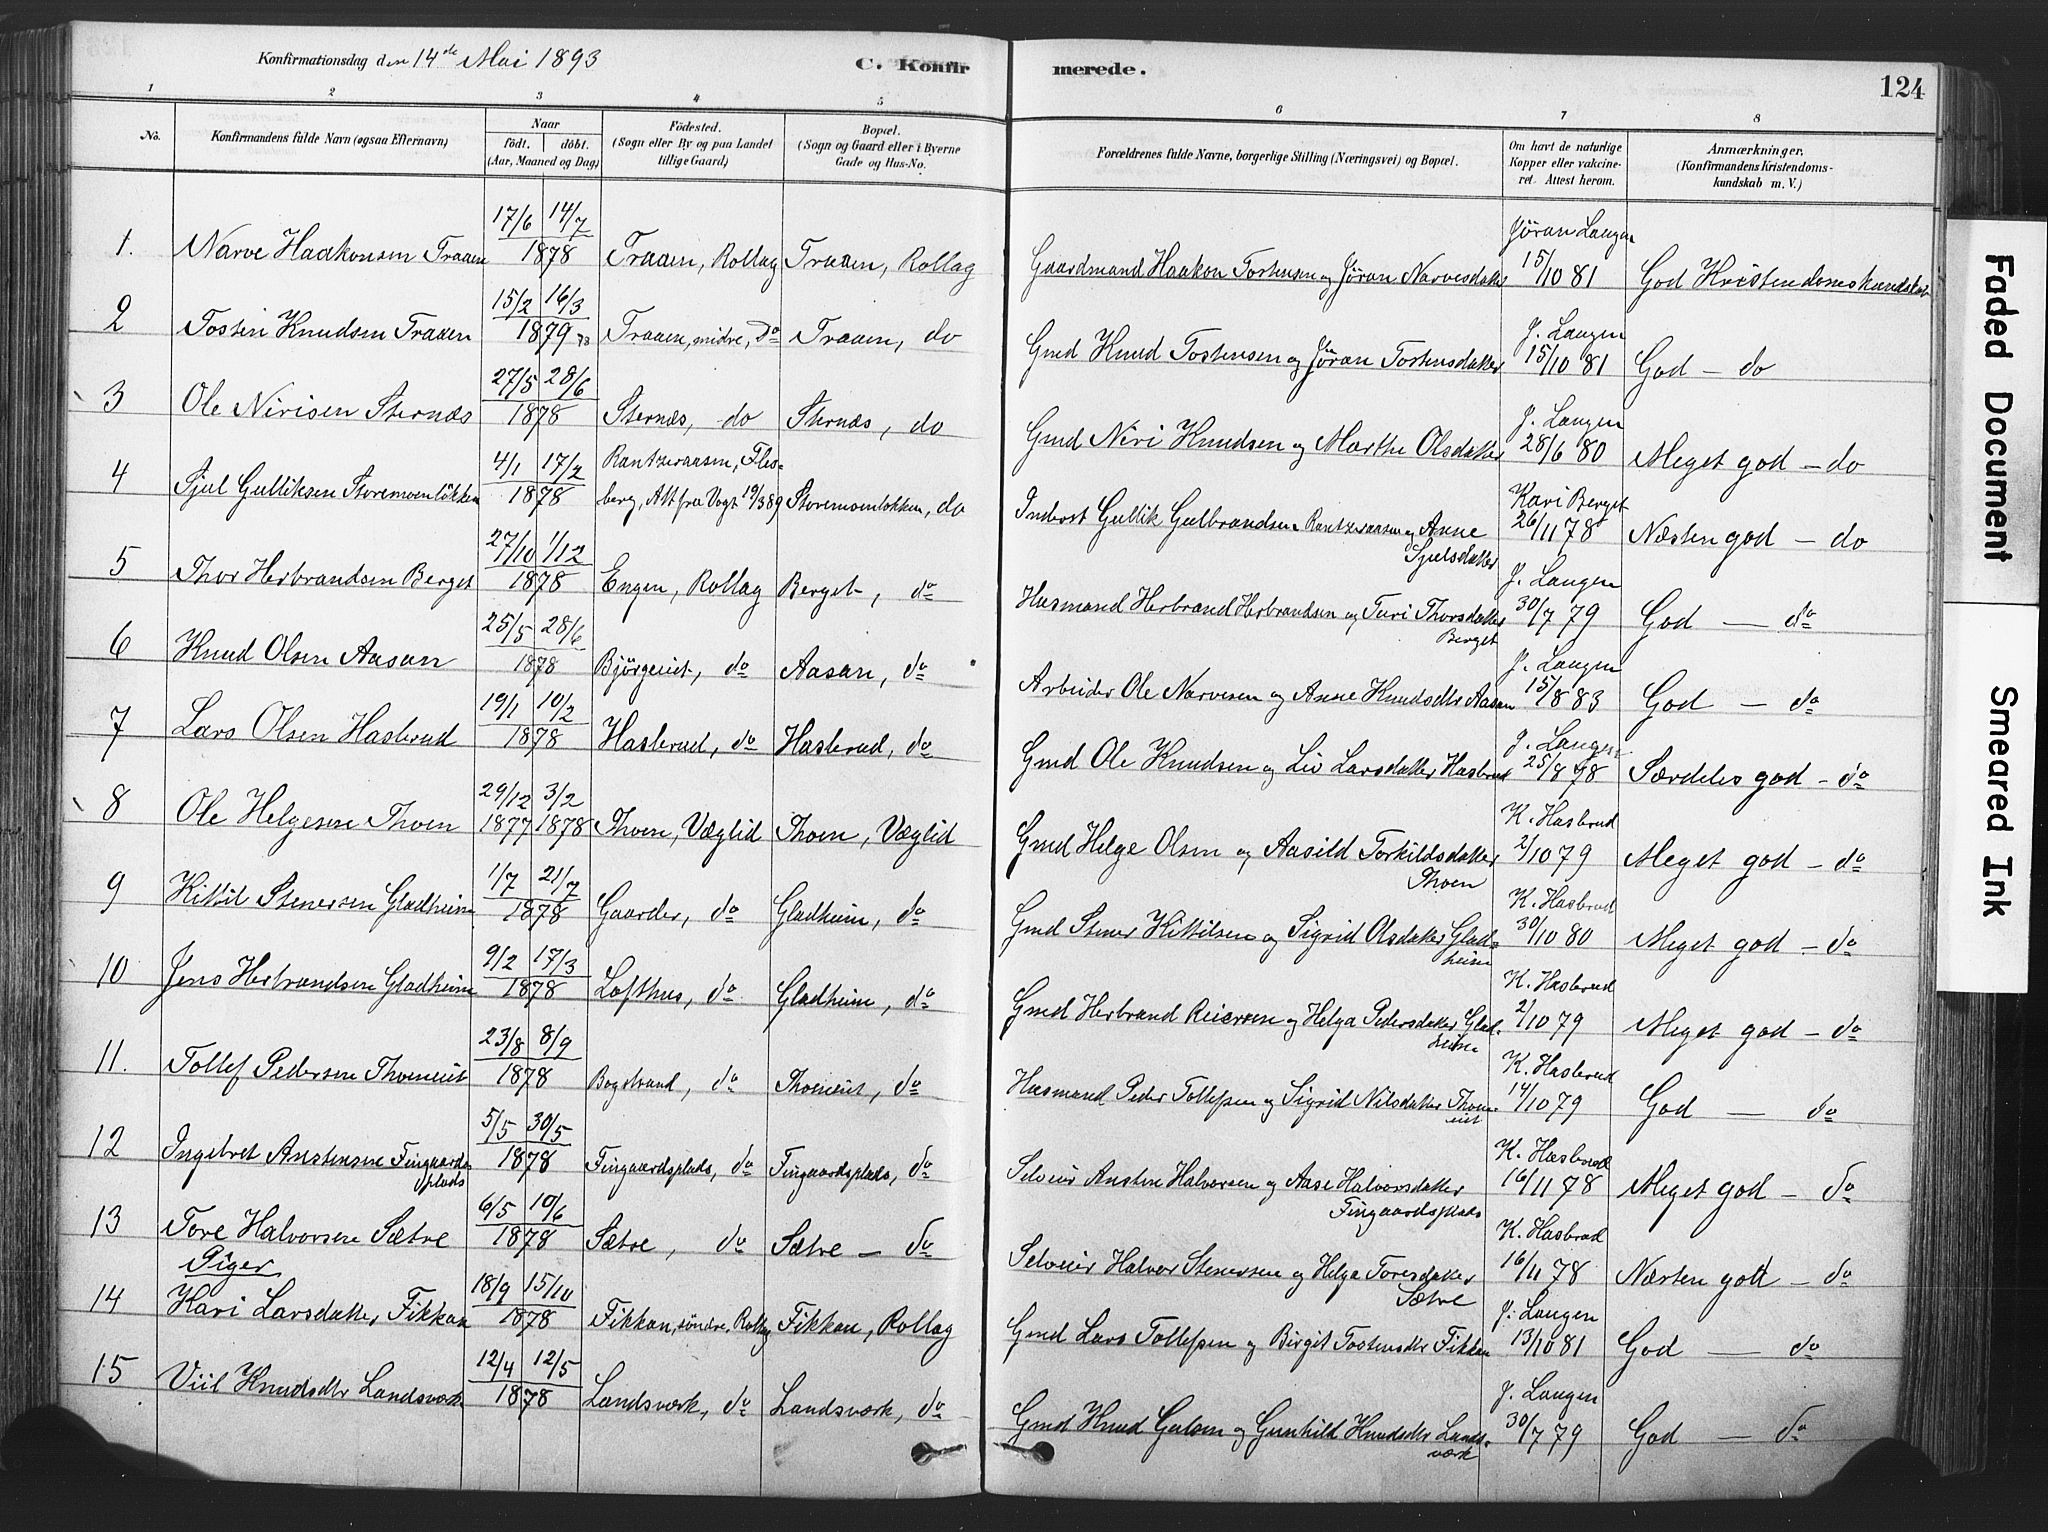 Konfirmationsdag den 14de Mai 1893
C. Konfirmerede.
124
1 2 3 4 5 6 7 8
No. Konfirmandens fulde Navn (ogsaa Efternavn) Naar födt. döbt. (Aar, Maaned og Dag) Födested. (Sogn eller By og paa Landet tillige Gaard) Bopæl. (Sogn og Gaard eller i Byerne Gade og Hus-No. Forældrenes fulde Navne, borgerlige Stilling (Næringsvei) og Bopæl. Om havt de naturlige Kopper eller vakcineret. Attest herom. Anmærkninger. (Konfirmandens Kristendomskundskab m. V.)
1. Narve Haakonsen Traaen 17/6 14/7 1878 Traaen, Rollag Traaen, Rollag Gaardmand Haakon Tostensen og Jöran Narvesdatter Jöran Laugen 15/10 81 God Kristendomskundskab
2 Tosten Knudsen Traaen 15/2 16/3 1879 Traaen, midre, do Traaen, do Gmd Knud Tostensen og Jöran Tostensdatter J. Laugen 15/10 81 God - do
3 Ole Nirisen Sternæs 27/5 28/6 1878 Sternæs, do Sternæs, do Gmd Niri Knudsen og Marthe Olsdatter J. Laugen 28/6 80 Meget god - do
4 Sjul Gulliksen Storemoenlökken 4/1 17/2 1878 Rantzeraasen, Flesberg, Att fra Vogt 19/3 89 Storemoenlökken, do Inderst Gullik Gulbrandsen Rantzeraasen og Anne Sjulsdatter Kari Berget 26/11 78 Næsten god - do
5 Thor Herbrandsen Berget 27/10 1/12 1878 Engen, Rollag Berget, do Husmand Herbrand Herbrandsen og Turi Thorsdatter Berget J. Laugen 30/7 79 God - do
6 Knud Olsen Aasan 25/5 28/6 1878 Björgeiet, do Aasan, do Arbeider Ole Narvesen og Anne Knudsdtr Aasan J. Laugen 15/8 83 God - do
7 Lars Olsen Hasbrud 19/1 10/2 1878 Hasbrud, do Hasbrud, do Gmd Ole Knudsen og Liv Larsdatter Hasbrud J. Laugen 25/8 78 Særdeles god - do
8 Ole Helgesen Thoen 29/12 1877 3/2 1878 Thoen, Væglid Thoen, Væglid Gmd Helge Olsen og Aasild Torkildsdatter Thoen K. Hasbrud 2/10 79 Meget god - do
9 Kittil Stenersen Gladheim 1/7 21/7 1878 Gaarder, do Gladheim, do Gmd Stener Kittilsen og Sigrid Olsdatter Gladheim K. Hasbrud 30/10 80 Meget god - do
10 Jens Herbrandsen Gladheim 9/2 17/3 1878 Lofthus, do Gladheim, do Gmd Herbrand Reiersen og Helga Pedersdatter Gladheim K. Hasbrud 2/10 79 Meget god - do
11. Tollef Pedersen Thoeneiet 23/8 8/9 1878 Bogstrand, do Thoeneiet, do Husmand Peder Tollefsen og Sigrid Nilsdatter Thoeneiet K. Hasbrud 14/10 79 God - do
12 Ingebret Anstensen Fingaardsplads 5/5 30/5 1878 Fingaardsplads, do Fingaardsplads, do Selveier Ansten Halvorsen og Aase Halvorsdatter Fingaardsplads K. Hasbrud 16/11 78 Meget god - do
13 Tore Halvorsen Sætre 6/5 10/6 1878 Sætre, do Sætre - do Selveier Halvor Stenersen og Helga Toresdatter Sætre K. Hasbrud 16/11 78 Næsten godt - do
Piger
14 Kari Larsdatter Fikkan 18/9 15/10 1878 Fikkan, söndre, Rollag Fikkan, Rollag Gmd Lars Tollefsen og Birgit Tostensdtr Fikkan J. Laugen 13/10 81 God - do
15 Viil Knudsdtr Landsværk 12/4 12/5 1878 Landsværk, do Landsværk, do Gmd Knud Gulsen og Gunhild Knudsdtr Landsværk J. Laugen 30/7 79 God - do
Faded Document
Smeared Ink